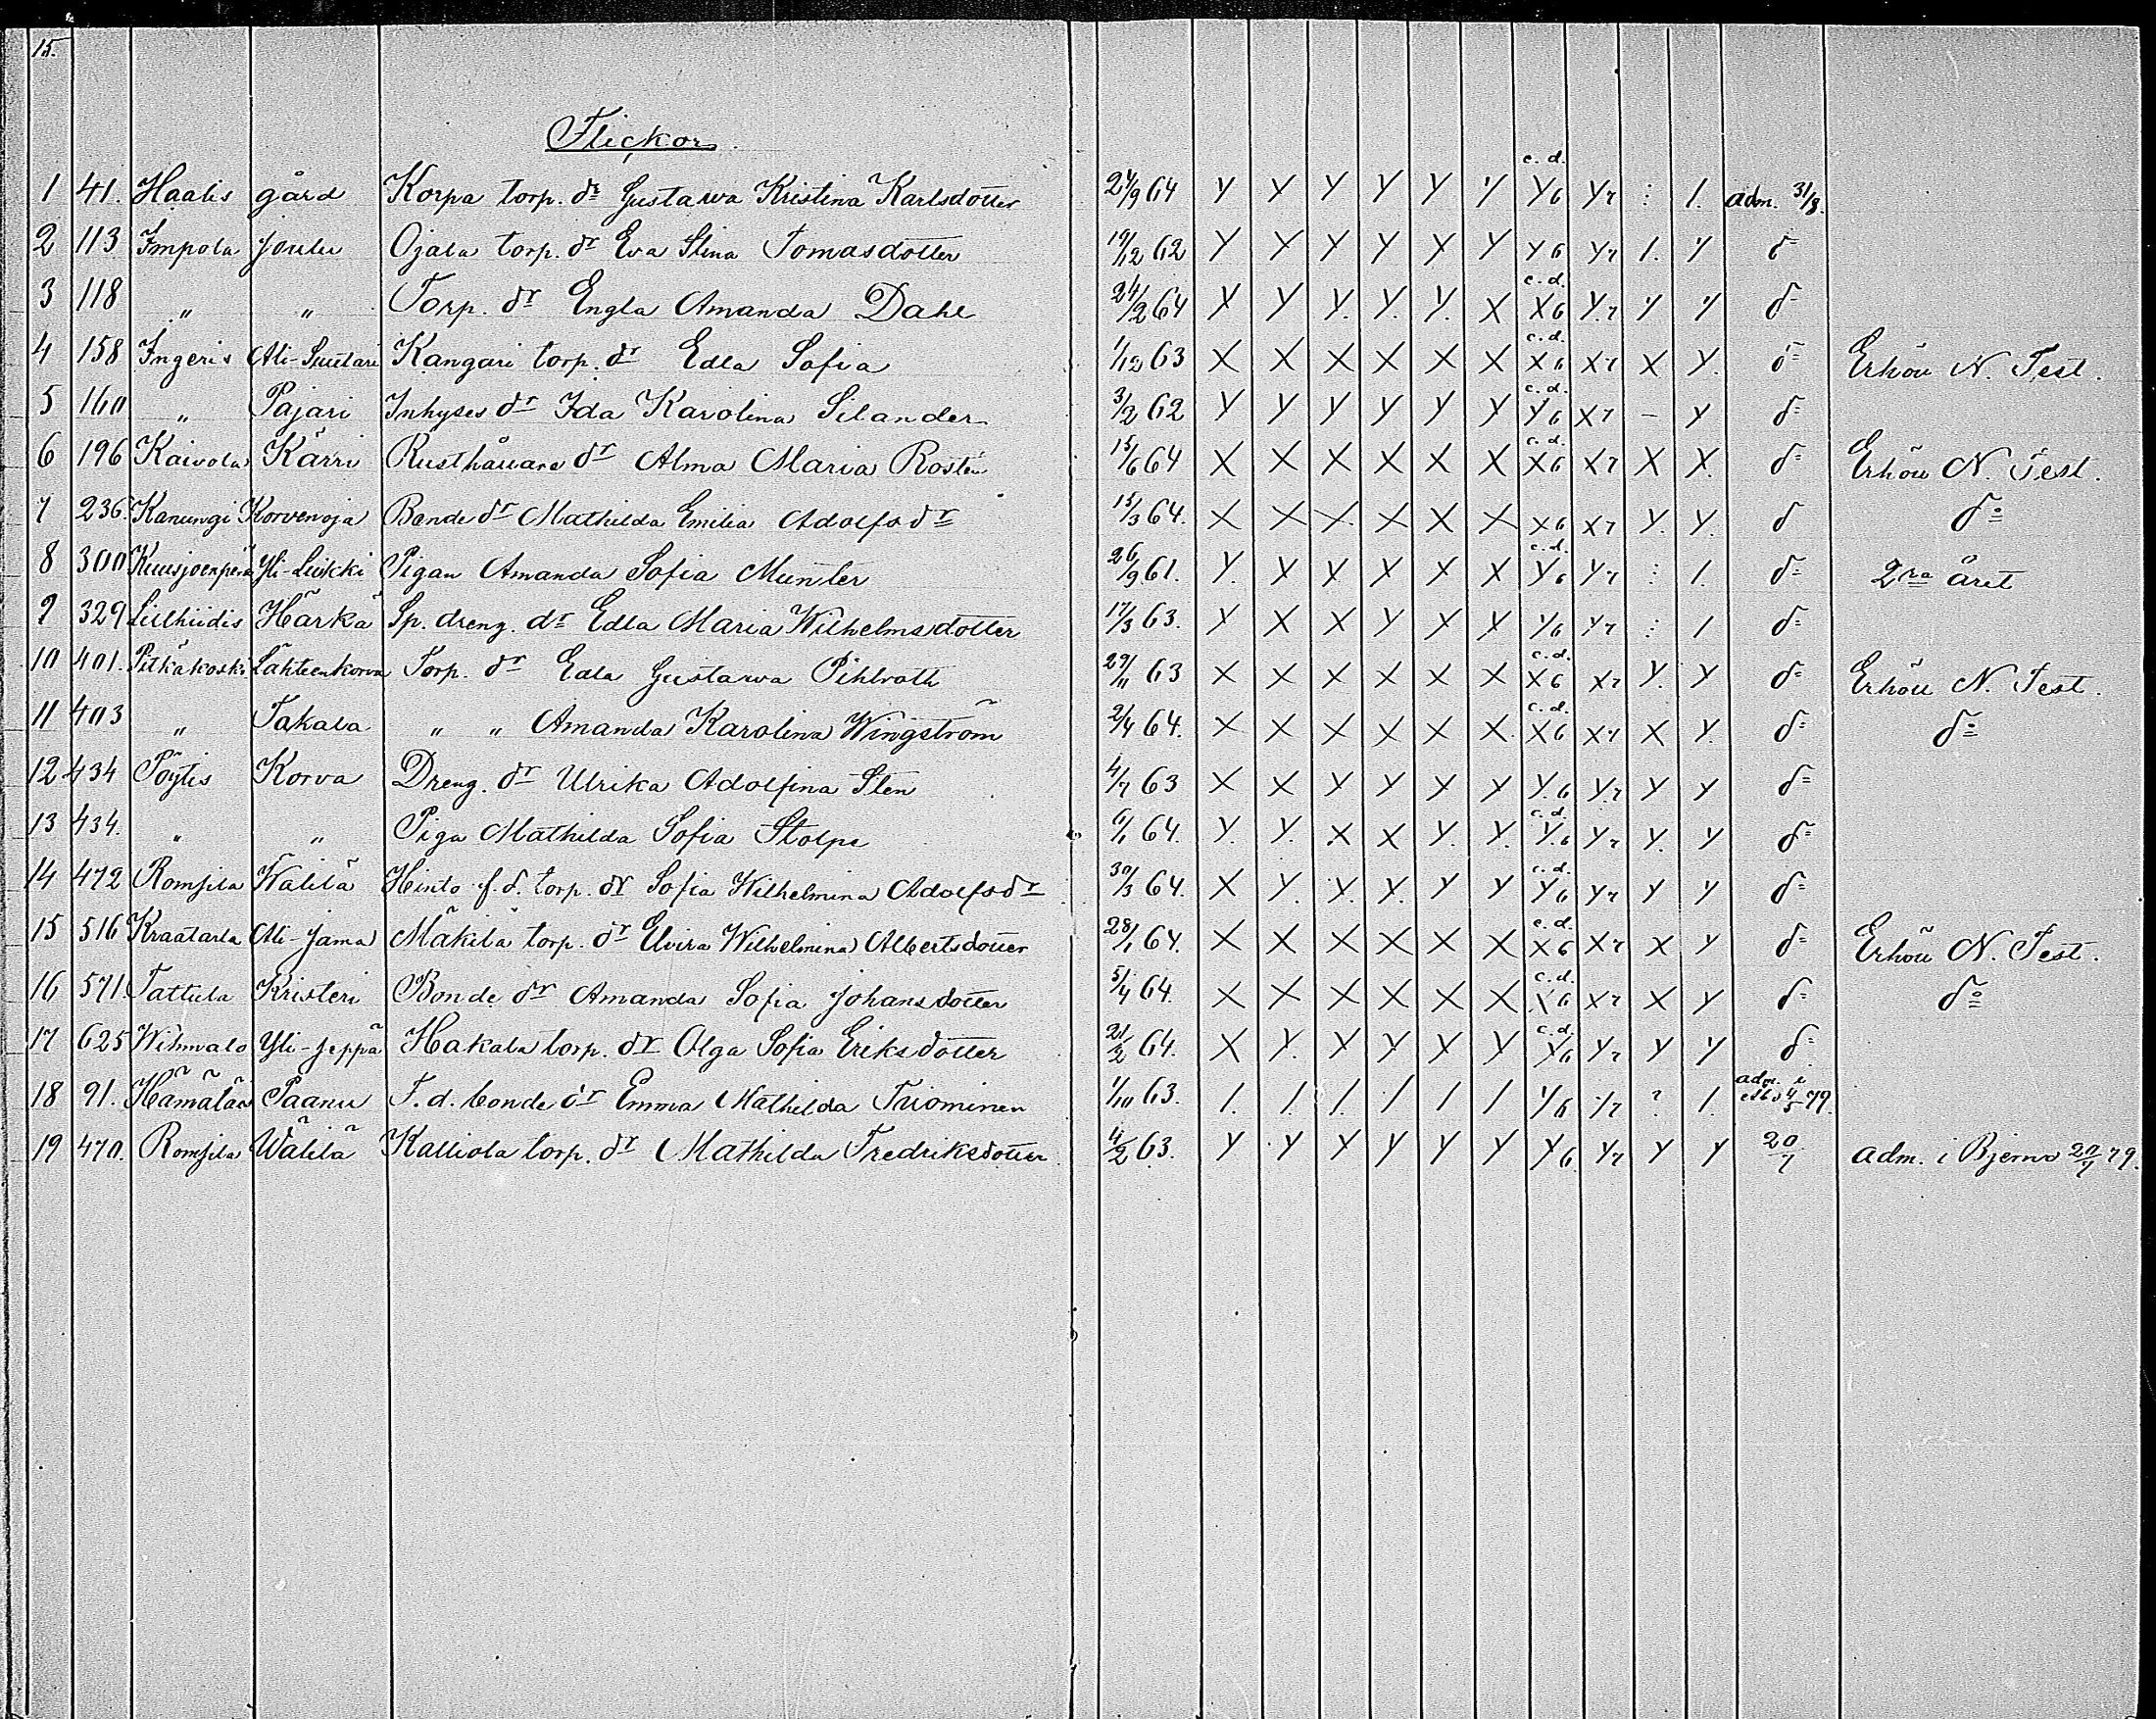 15.
Flickor
c. d.
1 41. Haalis gård Korpa torp. dr Gustawa Kristina Karlsdotter 24/9 64 Y Y Y Y Y Y Y6 Y7 : /. adm. 31/8.
2 113 Impola Joulu Ojala torp. dr Eva Stina Tomasdotter 19/12 62 Y Y Y Y Y Y Y6 Y7 /. Y d
c. d.
3 118 " " Torp. dr Engla Amanda Dahl 24/2 64 X Y Y. Y. Y. X X6 Y.7 Y Y d
c. d.
4 158 Ingeris Ali-Suutari Kangari torp. dr Edla Sofia 1/12 63 X X X X X X X6 X7 X Y. d Erhöll N. Test.
c. d.
5 160 " Pajari Inhyses dr Ida Karolina Silander 3/2 62 Y Y Y Y Y Y Y6 X7 – Y d
c. d.
6 196 Kaivola Kärri Rusthållare dr Alma Maria Rostén 15/6 64 X X X X X X X6 X7 X X. d Erhöll N. Test.
7 236. Kanungi Korvenoja Bonde dr Mathilda Emilia Adolfsdr 15/3 64. X X X X X X X6 X7 Y. Y. d do
c. d.
8 300 Kuusjoenperä Yli-Luikki Pigan Amanda Sofia Munter 26/9 61. Y. X X X X X Y6 Y7 : /. d 2ra året
9 329 Liuhiidis Härkä Sp. dreng. dr Edla Maria Wilhelmsdotter 17/3 63. Y X X Y X X Y6 Y7 : / d
c. d.
10 401. Pitkäkoski Lähteenkorva Torp. dr Edla Gustawa Pihlroth 29/11 63 X X X X X X X6 X7 Y. Y d Erhöll N. Test.
c. d.
11 403 " Takala " " Amanda Karolina Wingström 2/4 64. X X X X X X X6 X7 X Y. d do
12 434 Pöytis Korva Dreng. dr Ulrika Adolfina Sten 4/7 63 X X Y Y Y Y Y.6 Y.7 Y Y d
c. d.
13 434. " " Piga Mathilda Sofia Stolpe 6/1 64. Y. Y. X X Y. Y. Y.6 Y7 Y. Y d
c. d.
14 472 Romsila Wälilä Hinto f. d. torp. dr Sofia Wilhelmina Adolfsdr 30/3 64. X Y. Y. Y. Y Y Y6 Y7 Y Y d
c. d.
15 516 Kraatarla Ali-Jama Mäkilä torp. dr Elvira Wilhelmina Albertsdotter 28/1 64. X X X X X X X6 X7 X Y d Erhöll N. Test.
c. d.
16 571. Tattula Kristeri Bonde dr Amanda Sofia Johansdotter 5/4 64. X X X X X X X6 X7 X Y d do
c. d.
17 625 Wihmalo Yli-Jeppä Hakala torp. dr Olga Sofia Eriksdotter 21/2 64. X Y. X Y X Y Y6 Y7 Y Y d
18 91. Hämäläs Paanu F. d. bonde dr Emma Mathilda Tuominen 1/10 63. /. /. /. / / / Y6 Y7 ? /. adm. i 4/5 79.
19 470. Romsila Wälilä Kalliola torp. dr Mathilda Fredriksdotter 4/2 63. Y Y X Y Y Y Y6 Y7 Y Y 20/7 adm. i Bjerno 20/7 79.